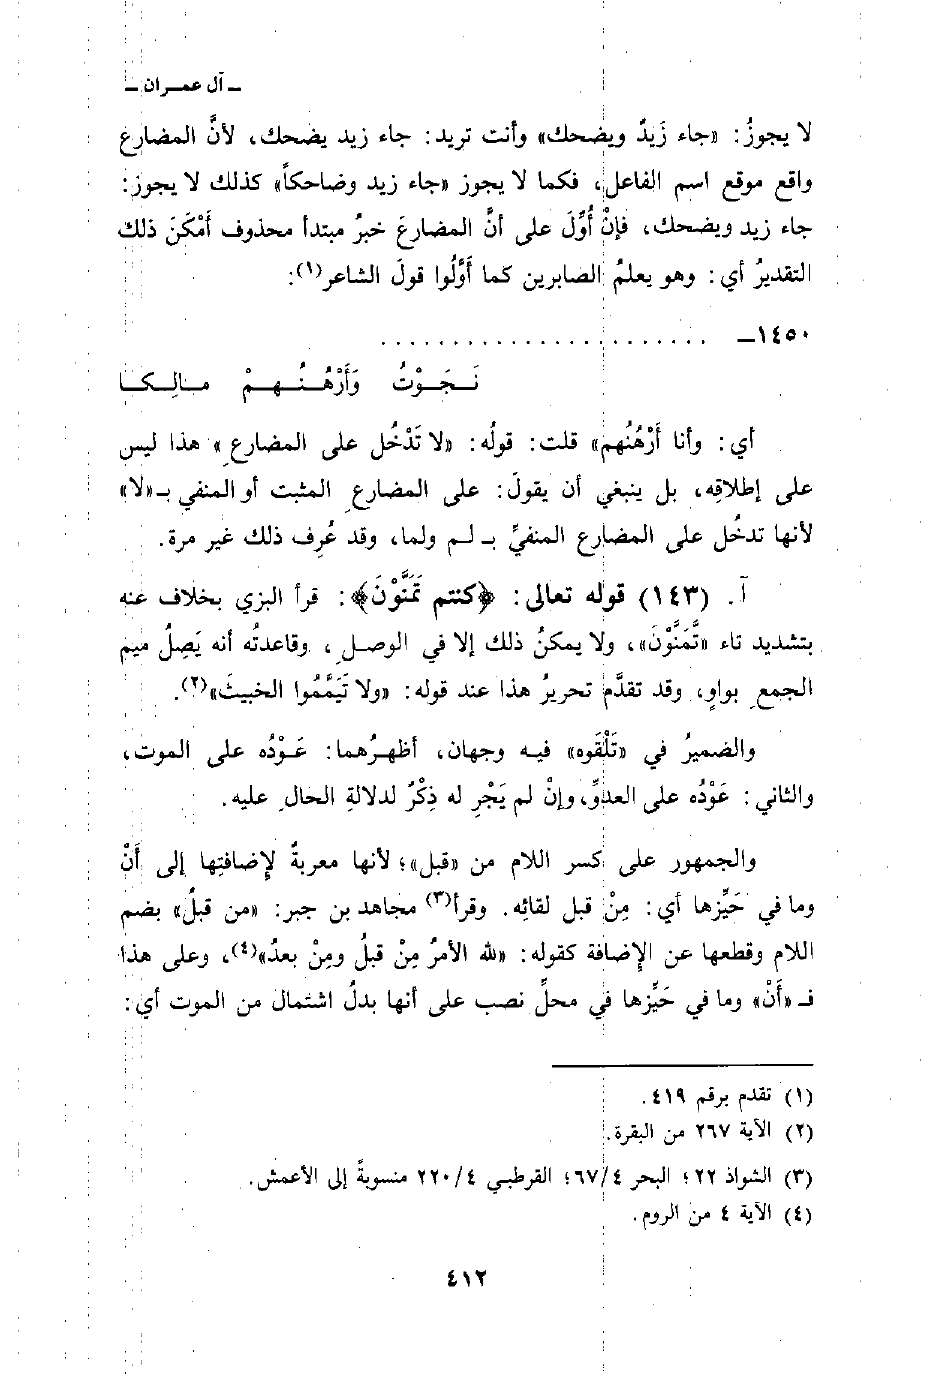 ـ آل عمــران ـ
لا يجوزُ: «جاء زَيدٌ ويضحك» وأنت تريد: جاء زيد يضحك، لأنَّ المضارع
واقع موقع اسم الفاعل، فكما لا يجوز «جاء زيد وضاحكاً» كذلك لا يجوز:
جاء زيد ويضحك، فإنْ أُوِّلَ على أنَّ المضارعَ خبرُ مبتدأ محذوف أمْكَنَ ذلك
التقديرُ أي: وهو يعلمُ الصابرين كما أَوَّلُوا قولَ الشاعر(١):
١٤٥٠ـ . . . . . . . . . . . . . . . . . . . . . .
نَــجَــوْتُ وَأَرْهُــنُــهــمْ مــالِــكــا
أي: وأنا أَرْهُنُهم» قلت: قولُه: «لا تَدْخُل على المضارعِ» هذا ليس
على إطلاقِه، بل ينبغي أن يقولَ: على المضارعِ المثبت أو المنفي بـ«لا»
لأنها تدخُل على المضارع المنفيِّ بـ لم ولما، وقد عُرِف ذلك غير مرة.
آ. (١٤٣) قوله تعالى: ﴿كنتم تَمَنَّوْنَ﴾: قرأ البزي بخلاف عنه
بتشديد تاء «تَّمَنَّوْنَ»، ولا يمكنُ ذلك إلا في الوصلِ، وقاعدتُه أنه يَصِلُ ميم
الجمعِ بواوٍ، وقد تقدَّم تحريرُ هذا عند قوله: «ولا تَيَمَّمُوا الخبيثَ»(٢).
والضميرُ في «تَلْقَوه» فيه وجهان، أظهرُهما: عَوْدُه على الموت،
والثاني: عَوْدُه على العدوِّ، وإنْ لم يَجْرِ له ذِكْرٌ لدلالةِ الحالِ عليه.
والجمهور على كسر اللام من «قبل»؛ لأنها معربةٌ لإِضافتِها إلى أَنْ
وما في حَيِّزها أي: مِنْ قبل لقائِه. وقرأ(٣) مجاهد بن جبر: «من قبلُ» بضم
اللام وقطعها عن الإِضافة كقوله: «لله الأمرُ مِنْ قبلُ ومِنْ بعدُ»(٤)، وعلى هذا
فـ «أَنْ» وما في حَيِّزها في محلِّ نصب على أنها بدلُ اشتمال من الموت أي:
(١) تقدم برقم ٤١٩.
(٢) الآية ٢٦٧ من البقرة.
(٣) الشواذ ٢٢؛ البحر ٦٧/٤؛ القرطبي ٢٢٠/٤ منسوبةً إلى الأعمش.
(٤) الآية ٤ من الروم.
٤١٢